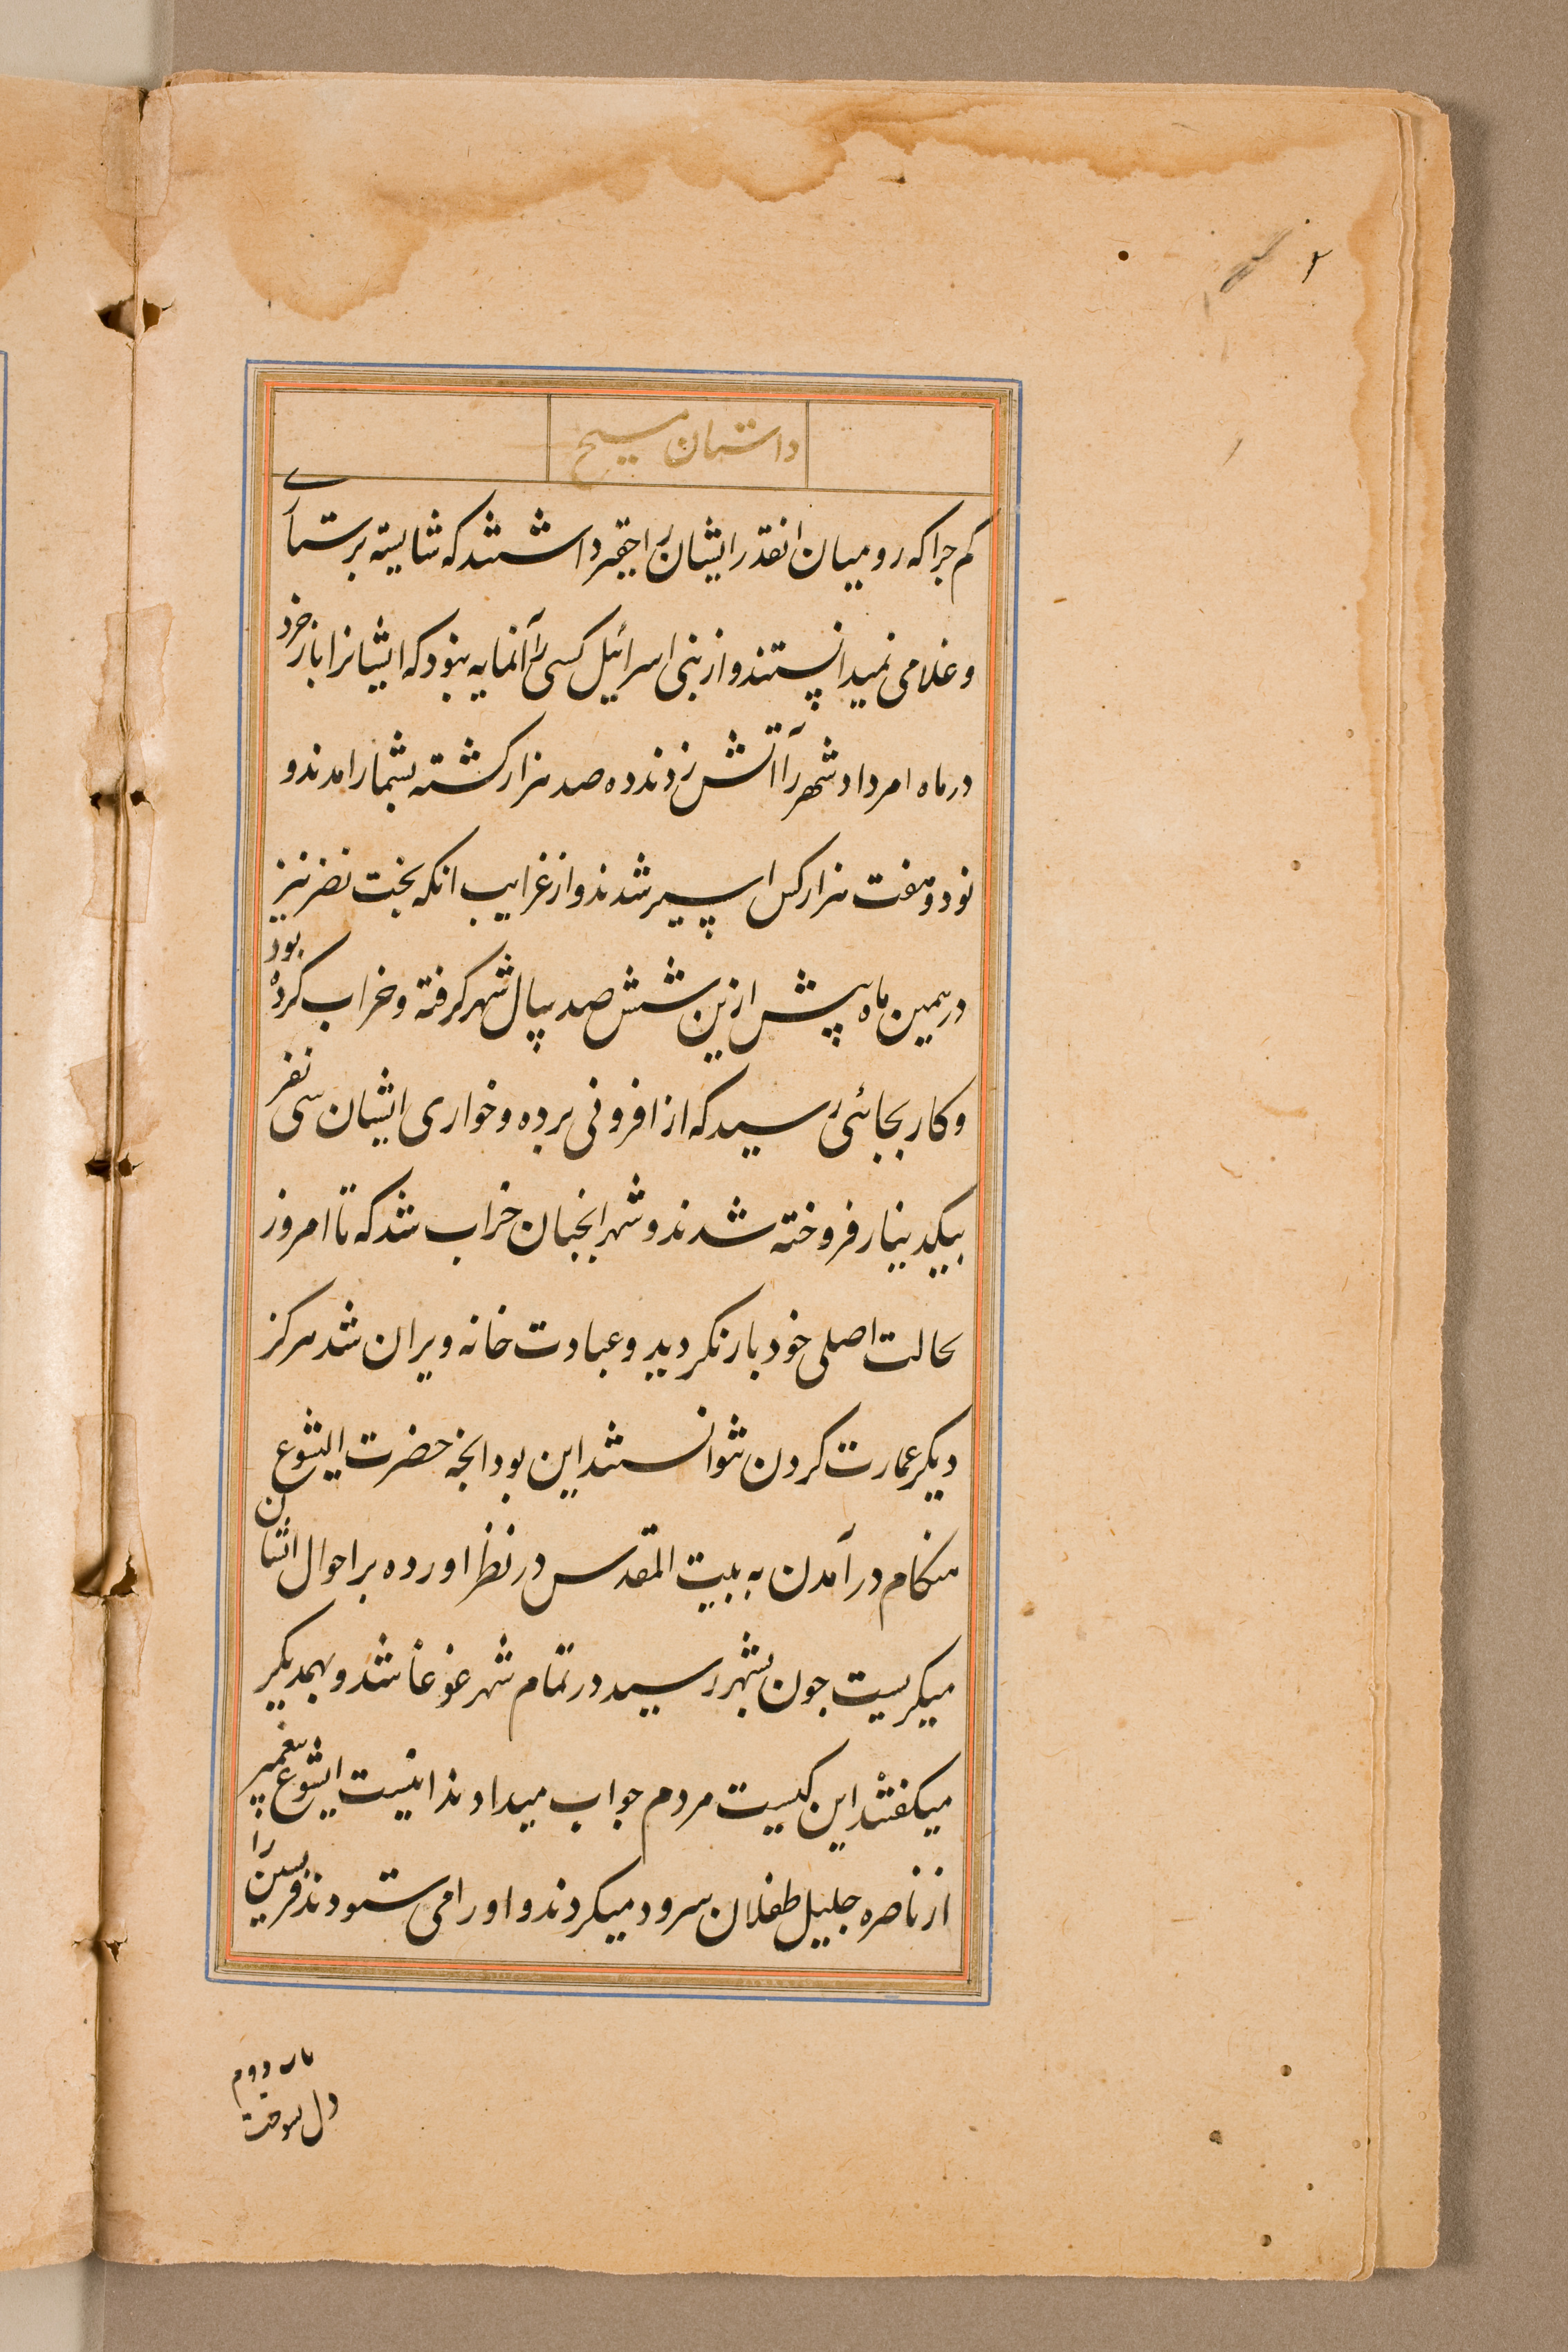 داستان مسیح
کم جرا که رومیان انقدر ایشان را حقیر داشتند که شایسته پرستاری
و غلامی نمیدانستند و از بنی اسرائیل کسی را آنمایه نبود که ایشانرا باز خرد
در ماه امرداد شهر را آتش زدند ده صد هزار کشته بشمار امدند و
نود و هفت هزار کس اسیر شدند و از غرایب انکه بخت نصر نیز
در همین ماه پیش ازین شش صد سال شهر کرفته و خراب کرده بود
و کار بجائی رسید که از افزونی برده و خواری ایشان سی نفر
بیکدینار فروخته شدند و شهر انجنان خراب شد که تا امروز
بحالت اصلی خود باز نکردید و عبادت خانه ویران شد هرکز
دیکر عمارت کردن نتوانستند این بود انجه حضرت ایشوع
هنکام در آمدن به بیت المقدس در نظر اورده بر احوال ایشان
میکریست جون بشهر رسید در تمام شهر غوغا شد و بهمدیکر
میکفتند این کیست مردم جواب میدادند اینست ایشوع پیغمبر
از ناصره جلیل طفلان سرود میکردند و او را می ستودند فریسین را
دوم
دل سوخت